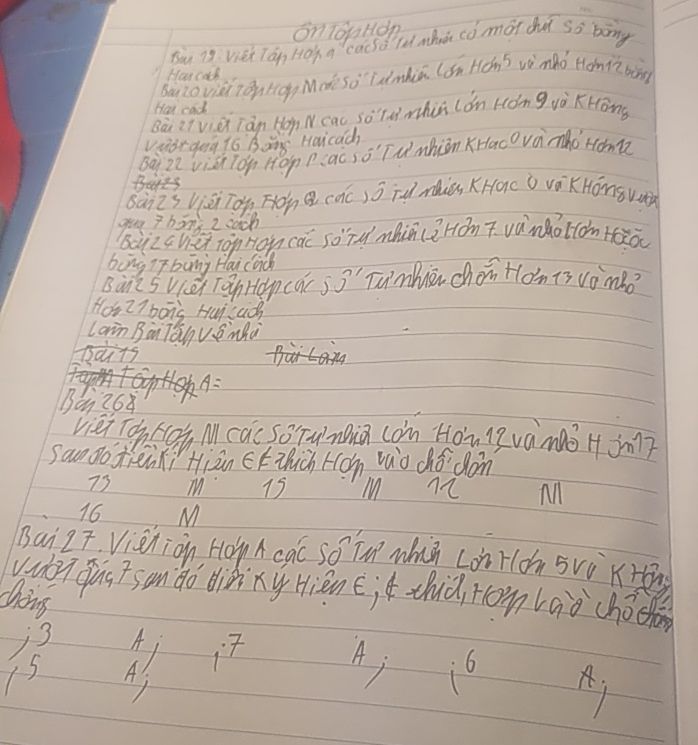 Ôn Tập Hợp
Bài 19. Viết Tập Hợp a các số tự nhiên có một chữ số bằng
Hai cách
Bài 20 viết Tập Hợp M các số Tự nhiên Lớn Hơn 5 và nhỏ Hơn 12 bằng
Hai cách
Bài 21 viết Tập Hợp N các số Tự nhiên Lớn Hơn 9 và Không
Vượt quá 16 Bằng Hai cách
Bài 22 viết Tập Hợp P các số Tự nhiên KHác 0 và nhỏ Hơn 12
Bài 23
Bài 23 Viết Tập Hợp Q các số Tự nhiên KHác 0 và KHông vượt
quá 7 bằng 2 cách
Bài 24 Viết Tập Hợp các số Tự nhiên Lẻ Hơn 7 và nhỏ Hơn Hoặc
bằng 17 bằng Hai cách
Bài 25 Viết Tập Hợp các số Tự nhiên chẵn Hơn 13 và nhỏ
Hơn 21 bằng Hai cách
Làm Bài Tập Về nhà
Bài 19 Bài Làm
Tập Hợp A=
Bài 26
Viết Tập Hợp M các số Tự nhiên Lớn Hơn 12 và nhỏ Hơn 17
Sau đó điền Kí Hiệu ∈ ∉ thích Hợp vào chỗ
13 M 15 M 12 M
16 M
Bài 27. Viết Tập Hợp A các số Tự nhiên Lớn Hơn 5 và KHông
vượt quá 7 sau đó điền Ký Hiệu ∈; ∉ thích Hợp vào chỗ
; 3 A; ; 7 A; ; 6 A;
; 5 A;